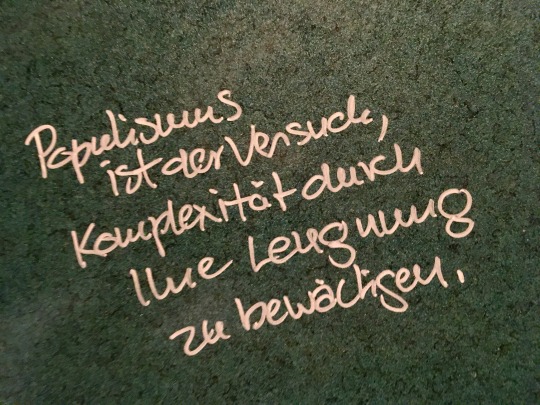 Populismus
ist der Versuch,
Komplexität durch
Ihre Leugnung
zu bewältigen.